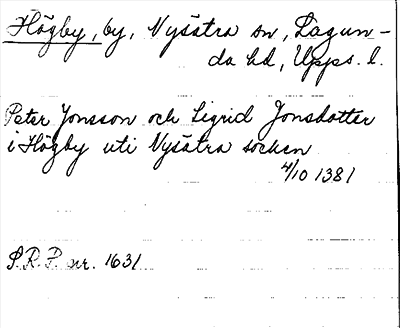 Högby, by, Nysätra sn, Lagun-
da hd, Upps. l.
Peter Jonsson och Sigrid Jonsdotter
i Högby uti Nysätra socken
4/10 1381
S.R.P. nr. 1631